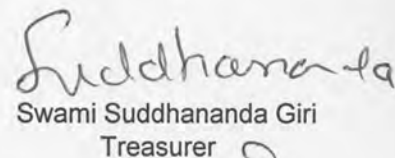 Suddhananda
Swami Suddhananda Giri
Treasurer